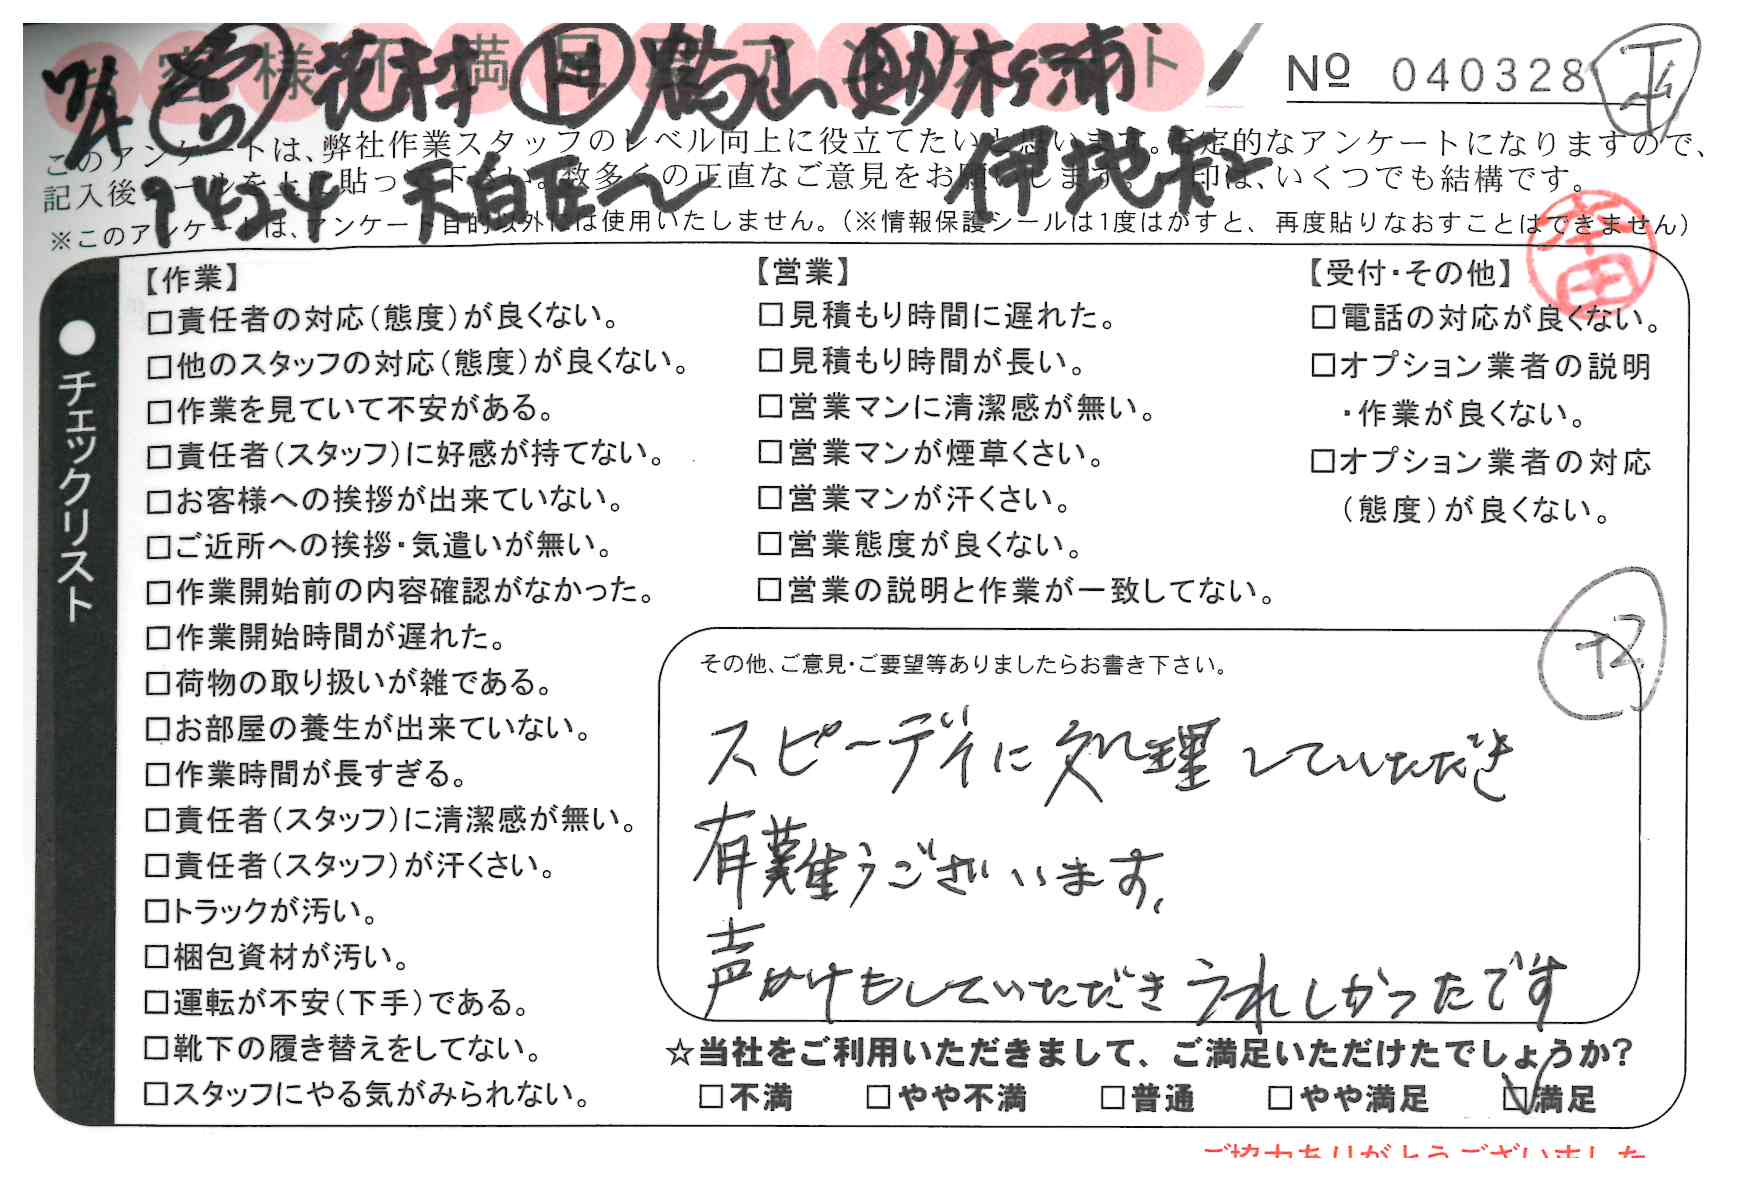 お客様不満足度アンケート
№ 040328
7/4 営 花村 日 鶴山 助 杉浦
伊地知
7424 天白区〜
このアンケートは、弊社作業スタッフのレベル向上に役立てたいと思います。否定的なアンケートになりますので、
記入後シールを上に貼って下さい。数多くの正直なご意見をお願いします。✓印は、いくつでも結構です。
※このアンケートは、アンケート目的以外には使用いたしません。（※情報保護シールは1度はがすと、再度貼りなおすことはできません）
本田
●チェックリスト
【作業】
□責任者の対応（態度）が良くない。
□他のスタッフの対応（態度）が良くない。
□作業を見ていて不安がある。
□責任者（スタッフ）に好感が持てない。
□お客様への挨拶が出来ていない。
□ご近所への挨拶・気遣いが無い。
□作業開始前の内容確認がなかった。
□作業開始時間が遅れた。
□荷物の取り扱いが雑である。
□お部屋の養生が出来ていない。
□作業時間が長すぎる。
□責任者（スタッフ）に清潔感が無い。
□責任者（スタッフ）が汗くさい。
□トラックが汚い。
□梱包資材が汚い。
□運転が不安（下手）である。
□靴下の履き替えをしてない。
□スタッフにやる気がみられない。
【営業】
□見積もり時間に遅れた。
□見積もり時間が長い。
□営業マンに清潔感が無い。
□営業マンが煙草くさい。
□営業マンが汗くさい。
□営業態度が良くない。
□営業の説明と作業が一致してない。
【受付・その他】
□電話の対応が良くない。
□オプション業者の説明
・作業が良くない。
□オプション業者の対応
（態度）が良くない。
+2
その他、ご意見・ご要望等ありましたらお書き下さい。
スピーディに処理していただき
有難うございます。
声かけもしていただきうれしかったです
☆当社をご利用いただきまして、ご満足いただけたでしょうか?
□不満 □やや不満 □普通 □やや満足 ☑満足
ご協力ありがとうございました